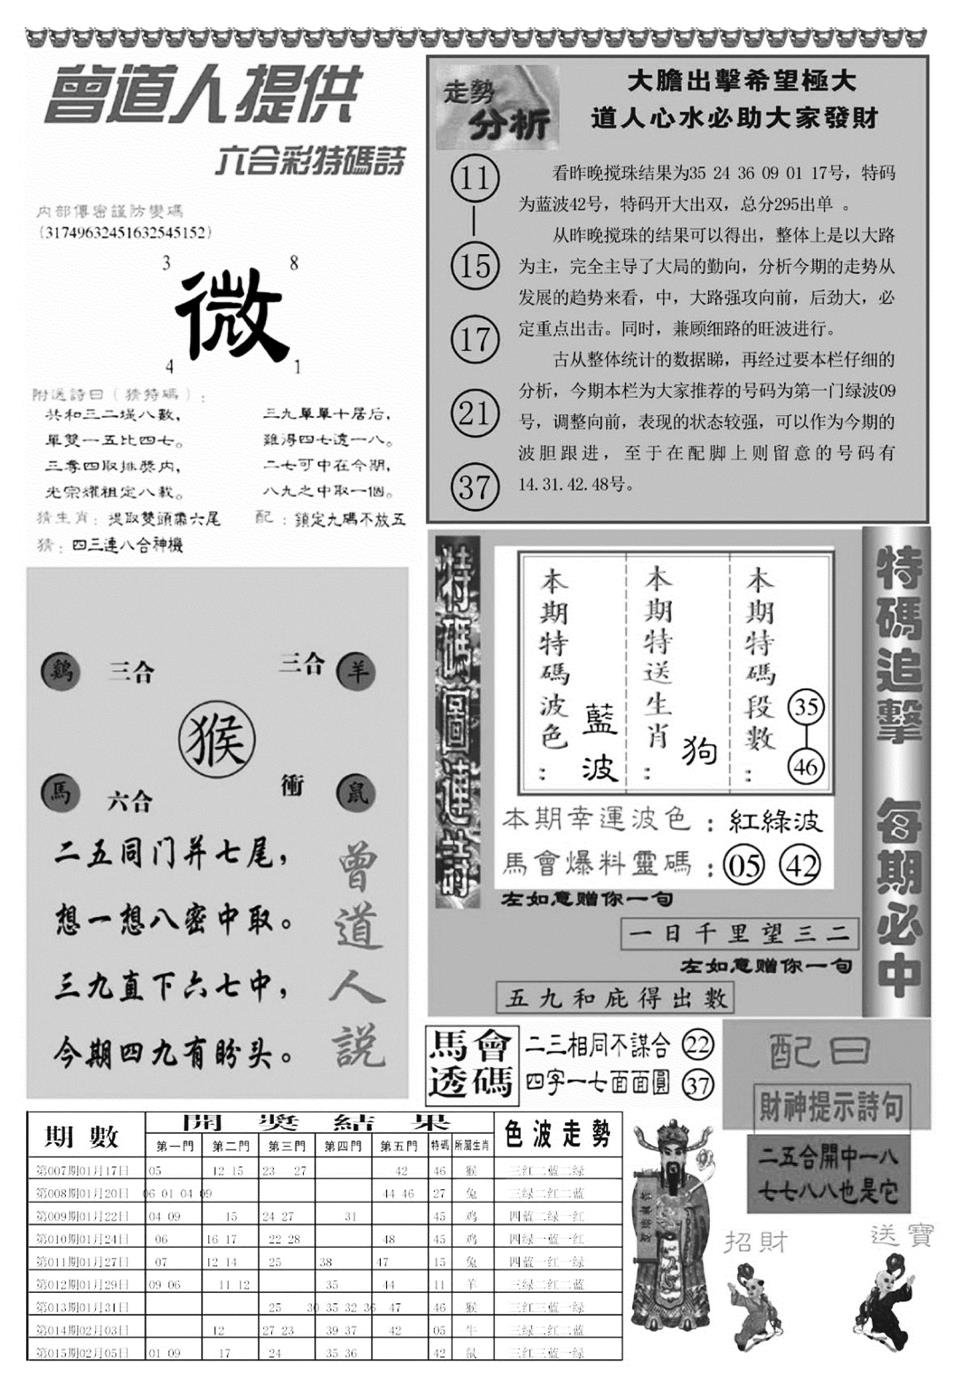 曾道人提供
六合彩特碼詩
內部傳密謹防變碼
(31749632451632545152)
3 8
微
4 1
附送詩曰(猜特碼):
共和三二堤八數,
單雙一五比四七。
三零四取排漿內,
光宗耀祖定八載。
三九單單十居后,
難得四七遠一八。
二七可中在今期,
八九之中取一個。
猜生肖: 提取雙頭需六尾 配: 鎖定九碼不放五
猜: 四三連八合神機
走勢
分析
大膽出擊希望極大
道人心水必助大家發財
11
15
17
21
37
看昨晚搅珠结果为35 24 36 09 01 17号,特码
为蓝波42号,特码开大出双,总分295出单 。
从昨晚搅珠的结果可以得出,整体上是以大路
为主,完全主导了大局的勤向,分析今期的走势从
发展的趋势来看,中,大路强攻向前,后劲大,必
定重点出击。同时,兼顾细路的旺波进行。
古从整体统计的数据睇,再经过要本栏仔细的
分析,今期本栏为大家推荐的号码为第一门绿波09
号,调整向前,表现的状态较强,可以作为今期的
波胆跟进,至于在配脚上则留意的号码有
14.31.42.48号。
鷄 三合 三合 羊
猴
馬 六合 衝 鼠
二五同门并七尾,
想一想八密中取。
三九直下六七中,
今期四九有盼头。
曾道人説
本期特碼波色:
藍波
本期特送生肖:
狗
本期特碼段數:
35
46
本期幸運波色:紅綠波
馬會爆料靈碼:05 42
左如意赠你一句
一日千里望三二
左如意赠你一句
五九和庇得出數
特碼追擊 每期必中
馬會
透碼
二三相同不謀合 22
四字一七面面圓 37
配曰
財神提示詩句
二五合開中一八
七七八八也是它
招財
送寶
期數 開獎結果 色波走勢
第一門 第二門 第三門 第四門 第五門 特碼 所屬生肖
第007期01月17日 05 12 15 23 27 42 46 猴 三红二蓝二绿
第008期01月20日 06 01 04 09 44 46 27 兔 三绿二红二蓝
第009期01月22日 04 09 15 24 27 31 45 鸡 四蓝二绿一红
第010期01月24日 06 16 17 22 28 48 45 鸡 四绿一蓝一红
第011期01月27日 07 12 14 25 38 47 15 兔 四蓝一红一绿
第012期01月29日 09 06 11 12 35 44 11 羊 三绿二红二蓝
第013期01月31日 25 30 35 32 36 47 46 猴 三红三蓝一绿
第014期02月03日 12 27 23 39 37 42 05 牛 三绿二红二蓝
第015期02月05日 01 09 17 24 35 36 42 鼠 三红三蓝一绿